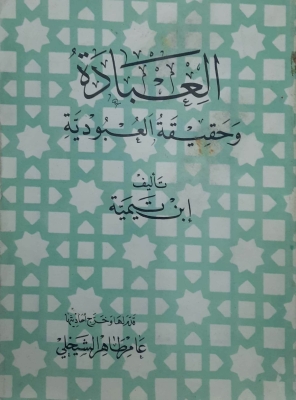 العِبَادَةُ
وَحَقِيقَةُ العُبُودِيَّةِ
تَأليفُ
إبْن تَيْمِيَّة
قدم لها وخرج أحاديثها
عامر طاهر الشيخلي